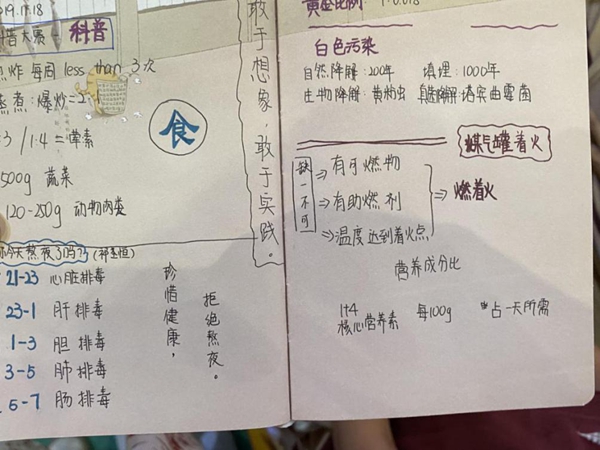 19.11.18
科普大赛 - 科普
煎炸 每周 less than 3次
蒸煮:爆炒=2:1
:3 / 1:4 = 荤素
500g 蔬菜
120-250g 动物肉类
食
敢于想象,敢于实践。
你今天熬夜了吗?
21-23 心脏排毒
23-1 肝排毒
1-3 胆排毒
3-5 肺排毒
5-7 肠排毒
珍惜健康,
拒绝熬夜。
黄金比例 1:0.618
白色污染
自然降解:200年 填埋:1000年
生物降解:黄粉虫 真菌降解:塔宾曲霉菌
煤气罐着火
缺一不可
⇒有可燃物
⇒有助燃剂
⇒温度达到着火点
⇒燃着火
营养成分比
1+4
核心营养素 每100g *占一天所需